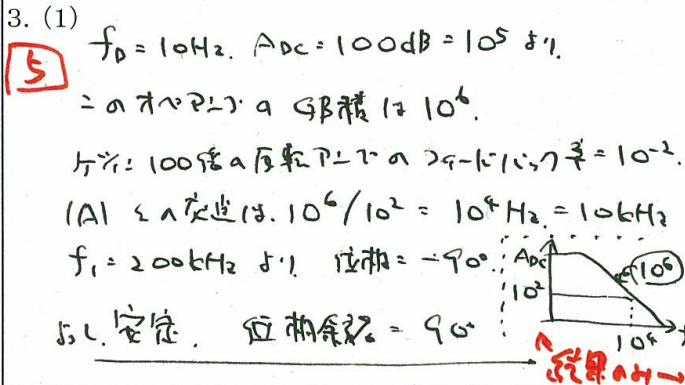 3. (1)
f_D = 10Hz. A_DC = 100dB = 10^5 より.
5
このオペアンプの GB積は 10^6.
ゲイン 100倍の反転アンプのフィードバック率 = 10^-2.
|A| との交点は. 10^6/10^2 = 10^4 Hz. = 10kHz
f_1 = 200kHz より 位相 = -90°.
A_DC
10^6
10^2
よって. 安定. 位相余裕 = 90°
10^4 f
結果のみ→